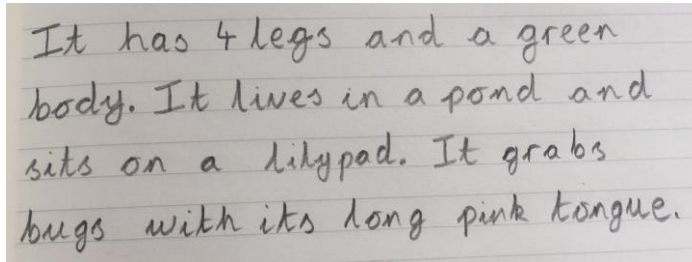 It has 4 legs and a green
body. It lives in a pond and
sits on a lilypad. It grabs
bugs with its long pink tongue.